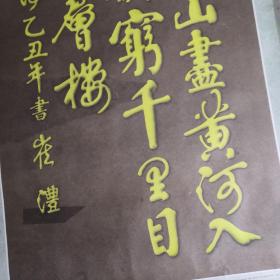 山盡黃河入
窮千里目
層樓
乙丑年書 崔澧